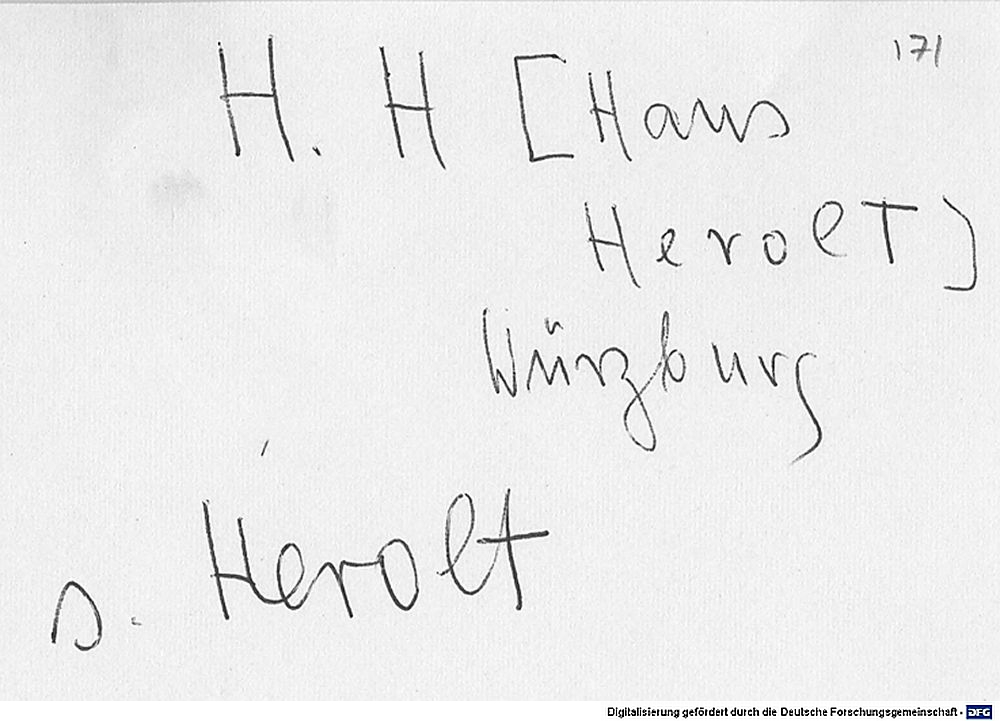 171
H. H [Hans
Herolt]
Würzburg
s. Herolt
Digitalisierung gefördert durch die Deutsche Forschungsgemeinschaft - DFG